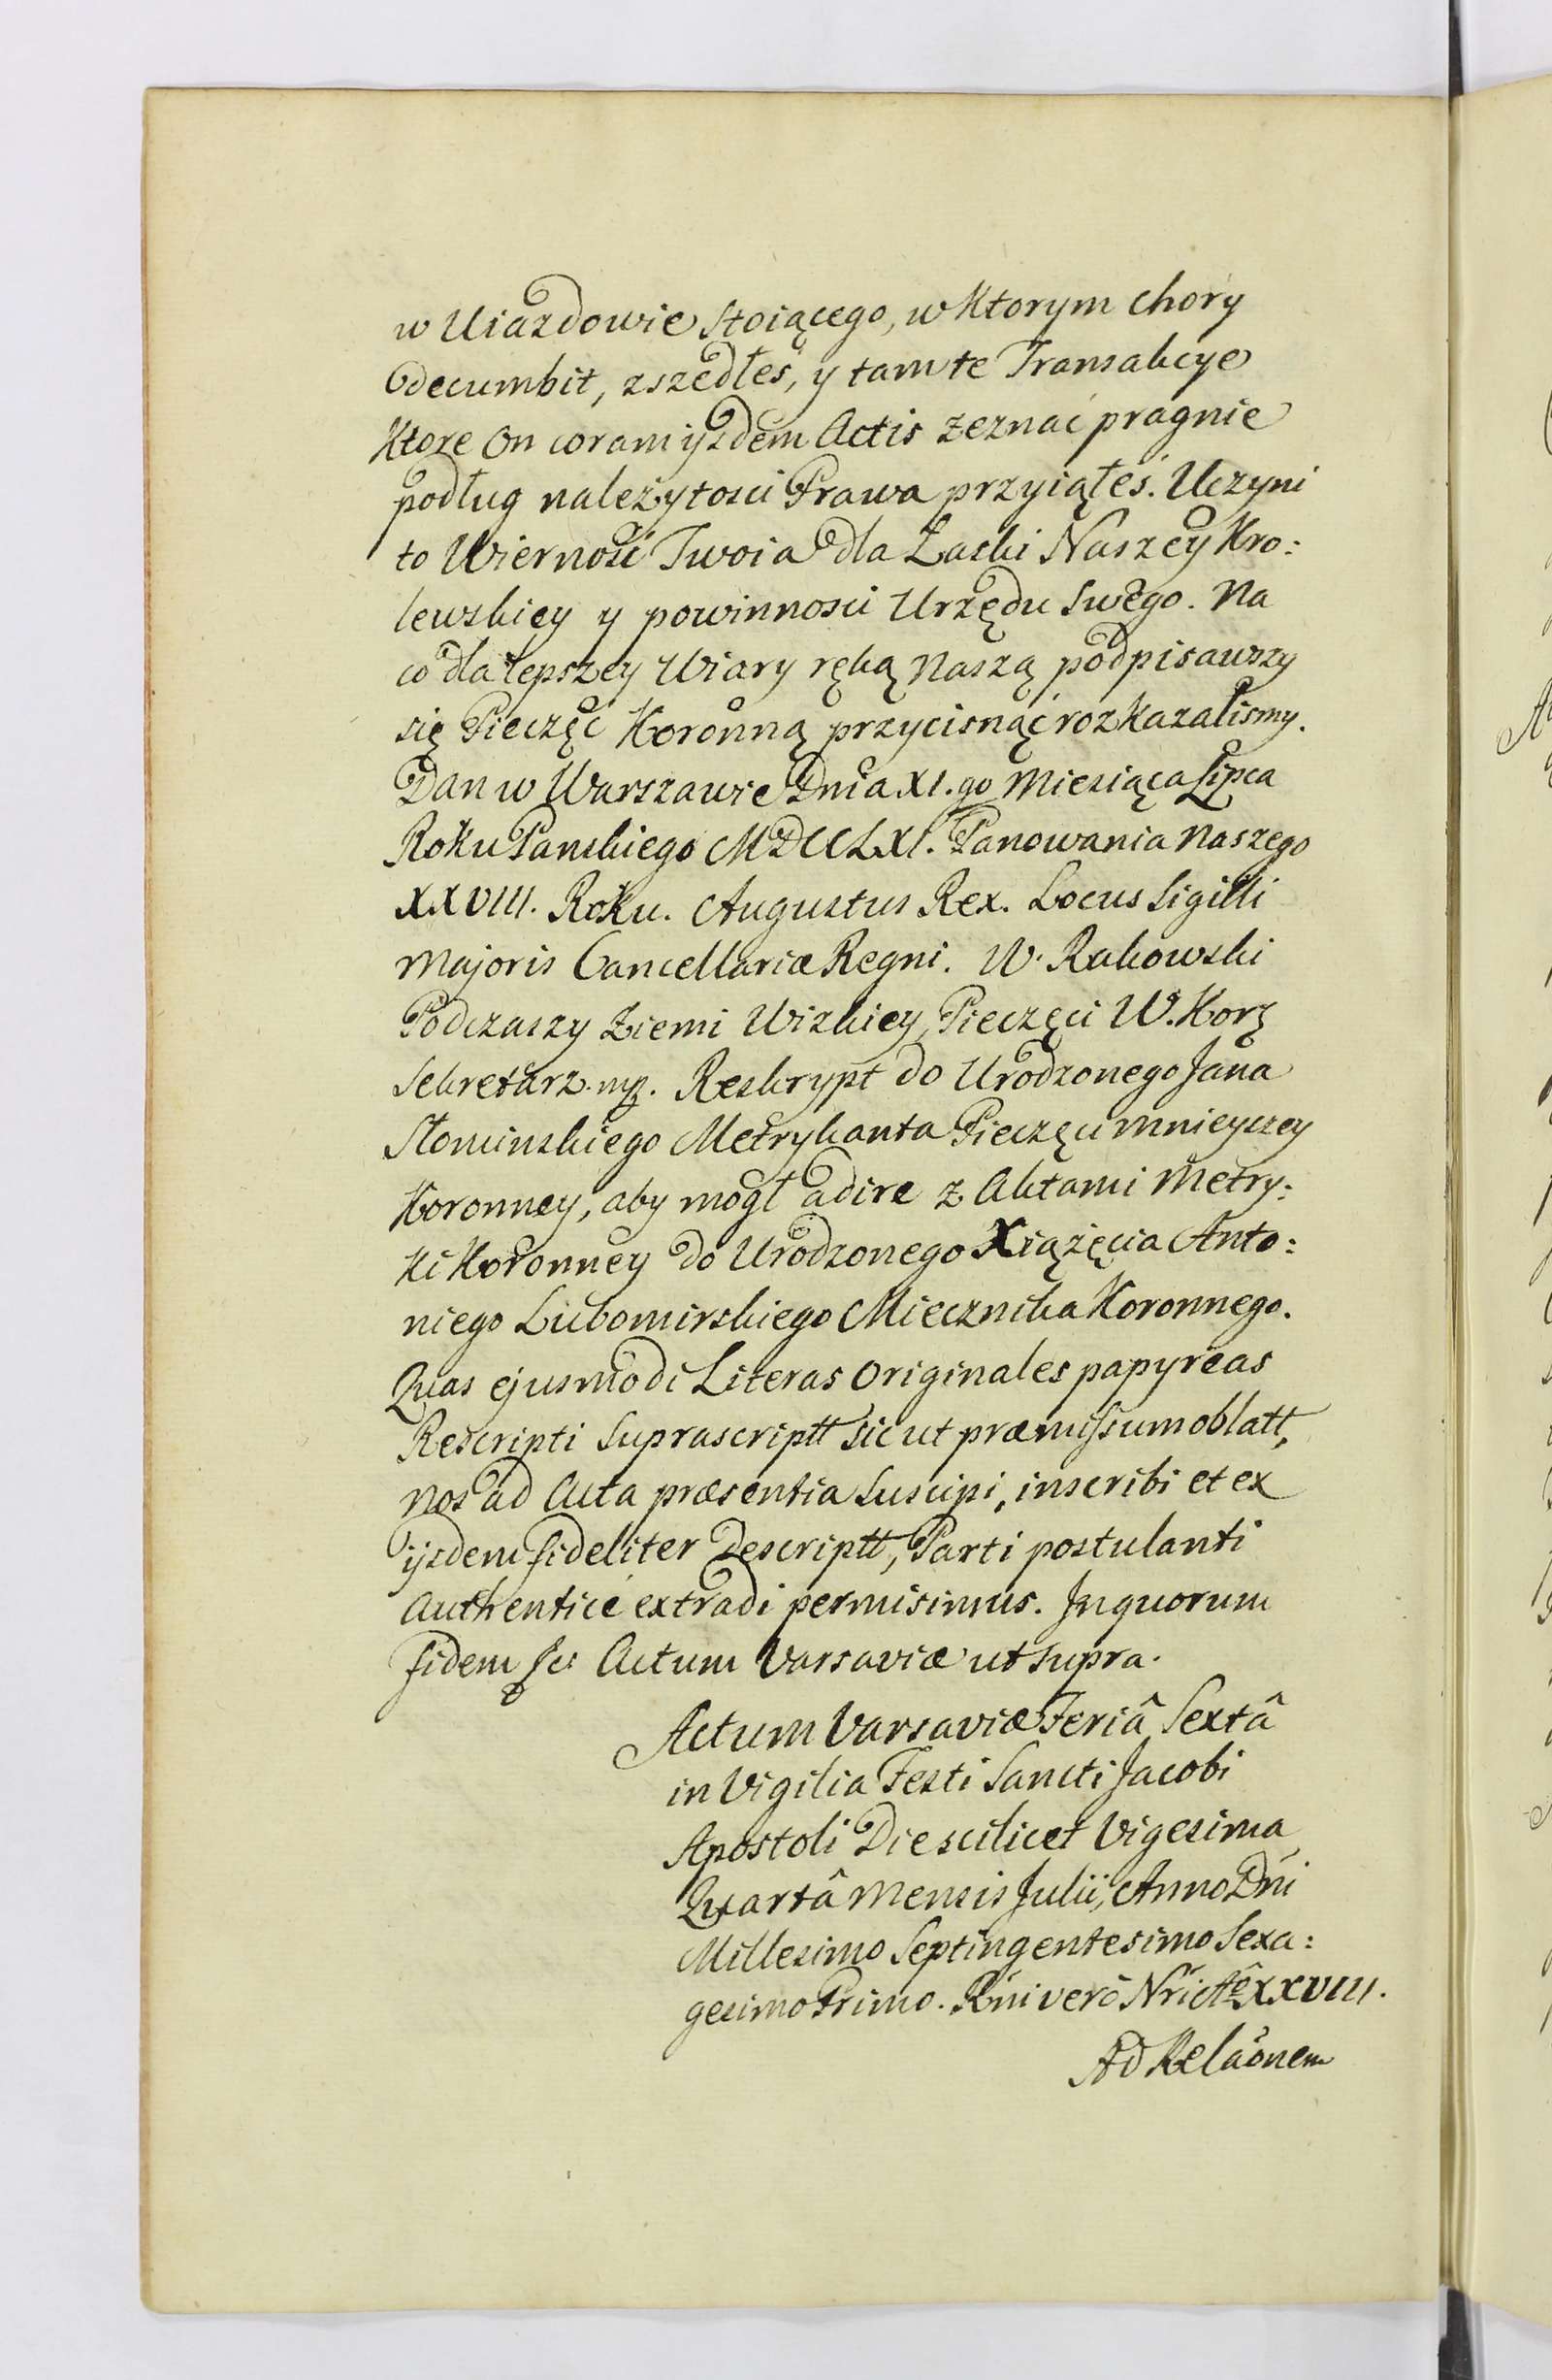 w Uiazdowie stoiącego, w Ktorym chory
decumbit, zszedłeś, y tam te Transakcye
Ktore On coram ijsdem Actis zeznać pragnie
podług należytosci Prawa przyiąłeś. Uczyni
to Wierność Twoia dla Łaski Naszey Kro:
lewskiey y powinnosci Urzędu Swego. Na
co dla lepszey Wiary ręką Naszą podpisawszy
się Pieczęć Koronną przycisnąć rozkazalismy.
Dan w Warszawie Dnia XI. go Miesiąca Lipca
Roku Panskiego MDCCLXI. Panowania Naszego
XXVIII. Roku. Augustus Rex. Locus Sigilli
Majoris Cancellariæ Regni. W. Rakowski
Podczaszy Ziemi Wizkiey, Pieczęci W. Kor:
Sekretarz. mp. Reskrypt do Urodzonego Jana
Słominskiego Metrykanta Pieczęci mnieyszey
Koronney, aby mogł adire z Aktami Metry:
ki Koronney do Urodzonego Xiążęcia Anto:
niego Lubomirskiego Miecznika Koronnego.
Quas ejusmodi Literas Originales papyreas
Rescripti Suprascriptt sic ut præmissum oblatt,
nos ad Acta præsentia Suscipi, inscribi et ex
ijsdem fideliter Descriptt, Parti postulanti
Authentice extradi permisimus. In quorum
fidem &c: Actum Varsaviæ ut supra.
Actum Varsaviæ Feriâ Sextâ
in Vigilia Festi Sancti Jacobi
Apostoli Die scilicet Vigesima
Quartâ Mensis Julii, Anno Dni
Millesimo Septingentesimo Sexa:
gesimo Primo. Rni verò Nri Aõ XXVIII.
Ad Relaõnem